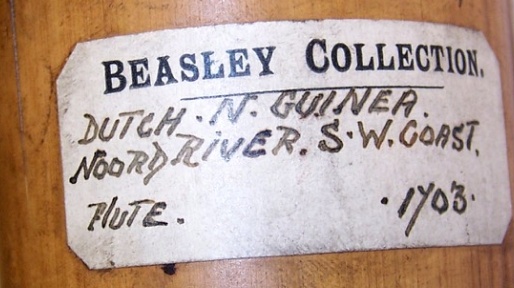 BEASLEY COLLECTION.
DUTCH. N. GUINEA.
NOORD RIVER. S. W. COAST.
FLUTE. . 1703.